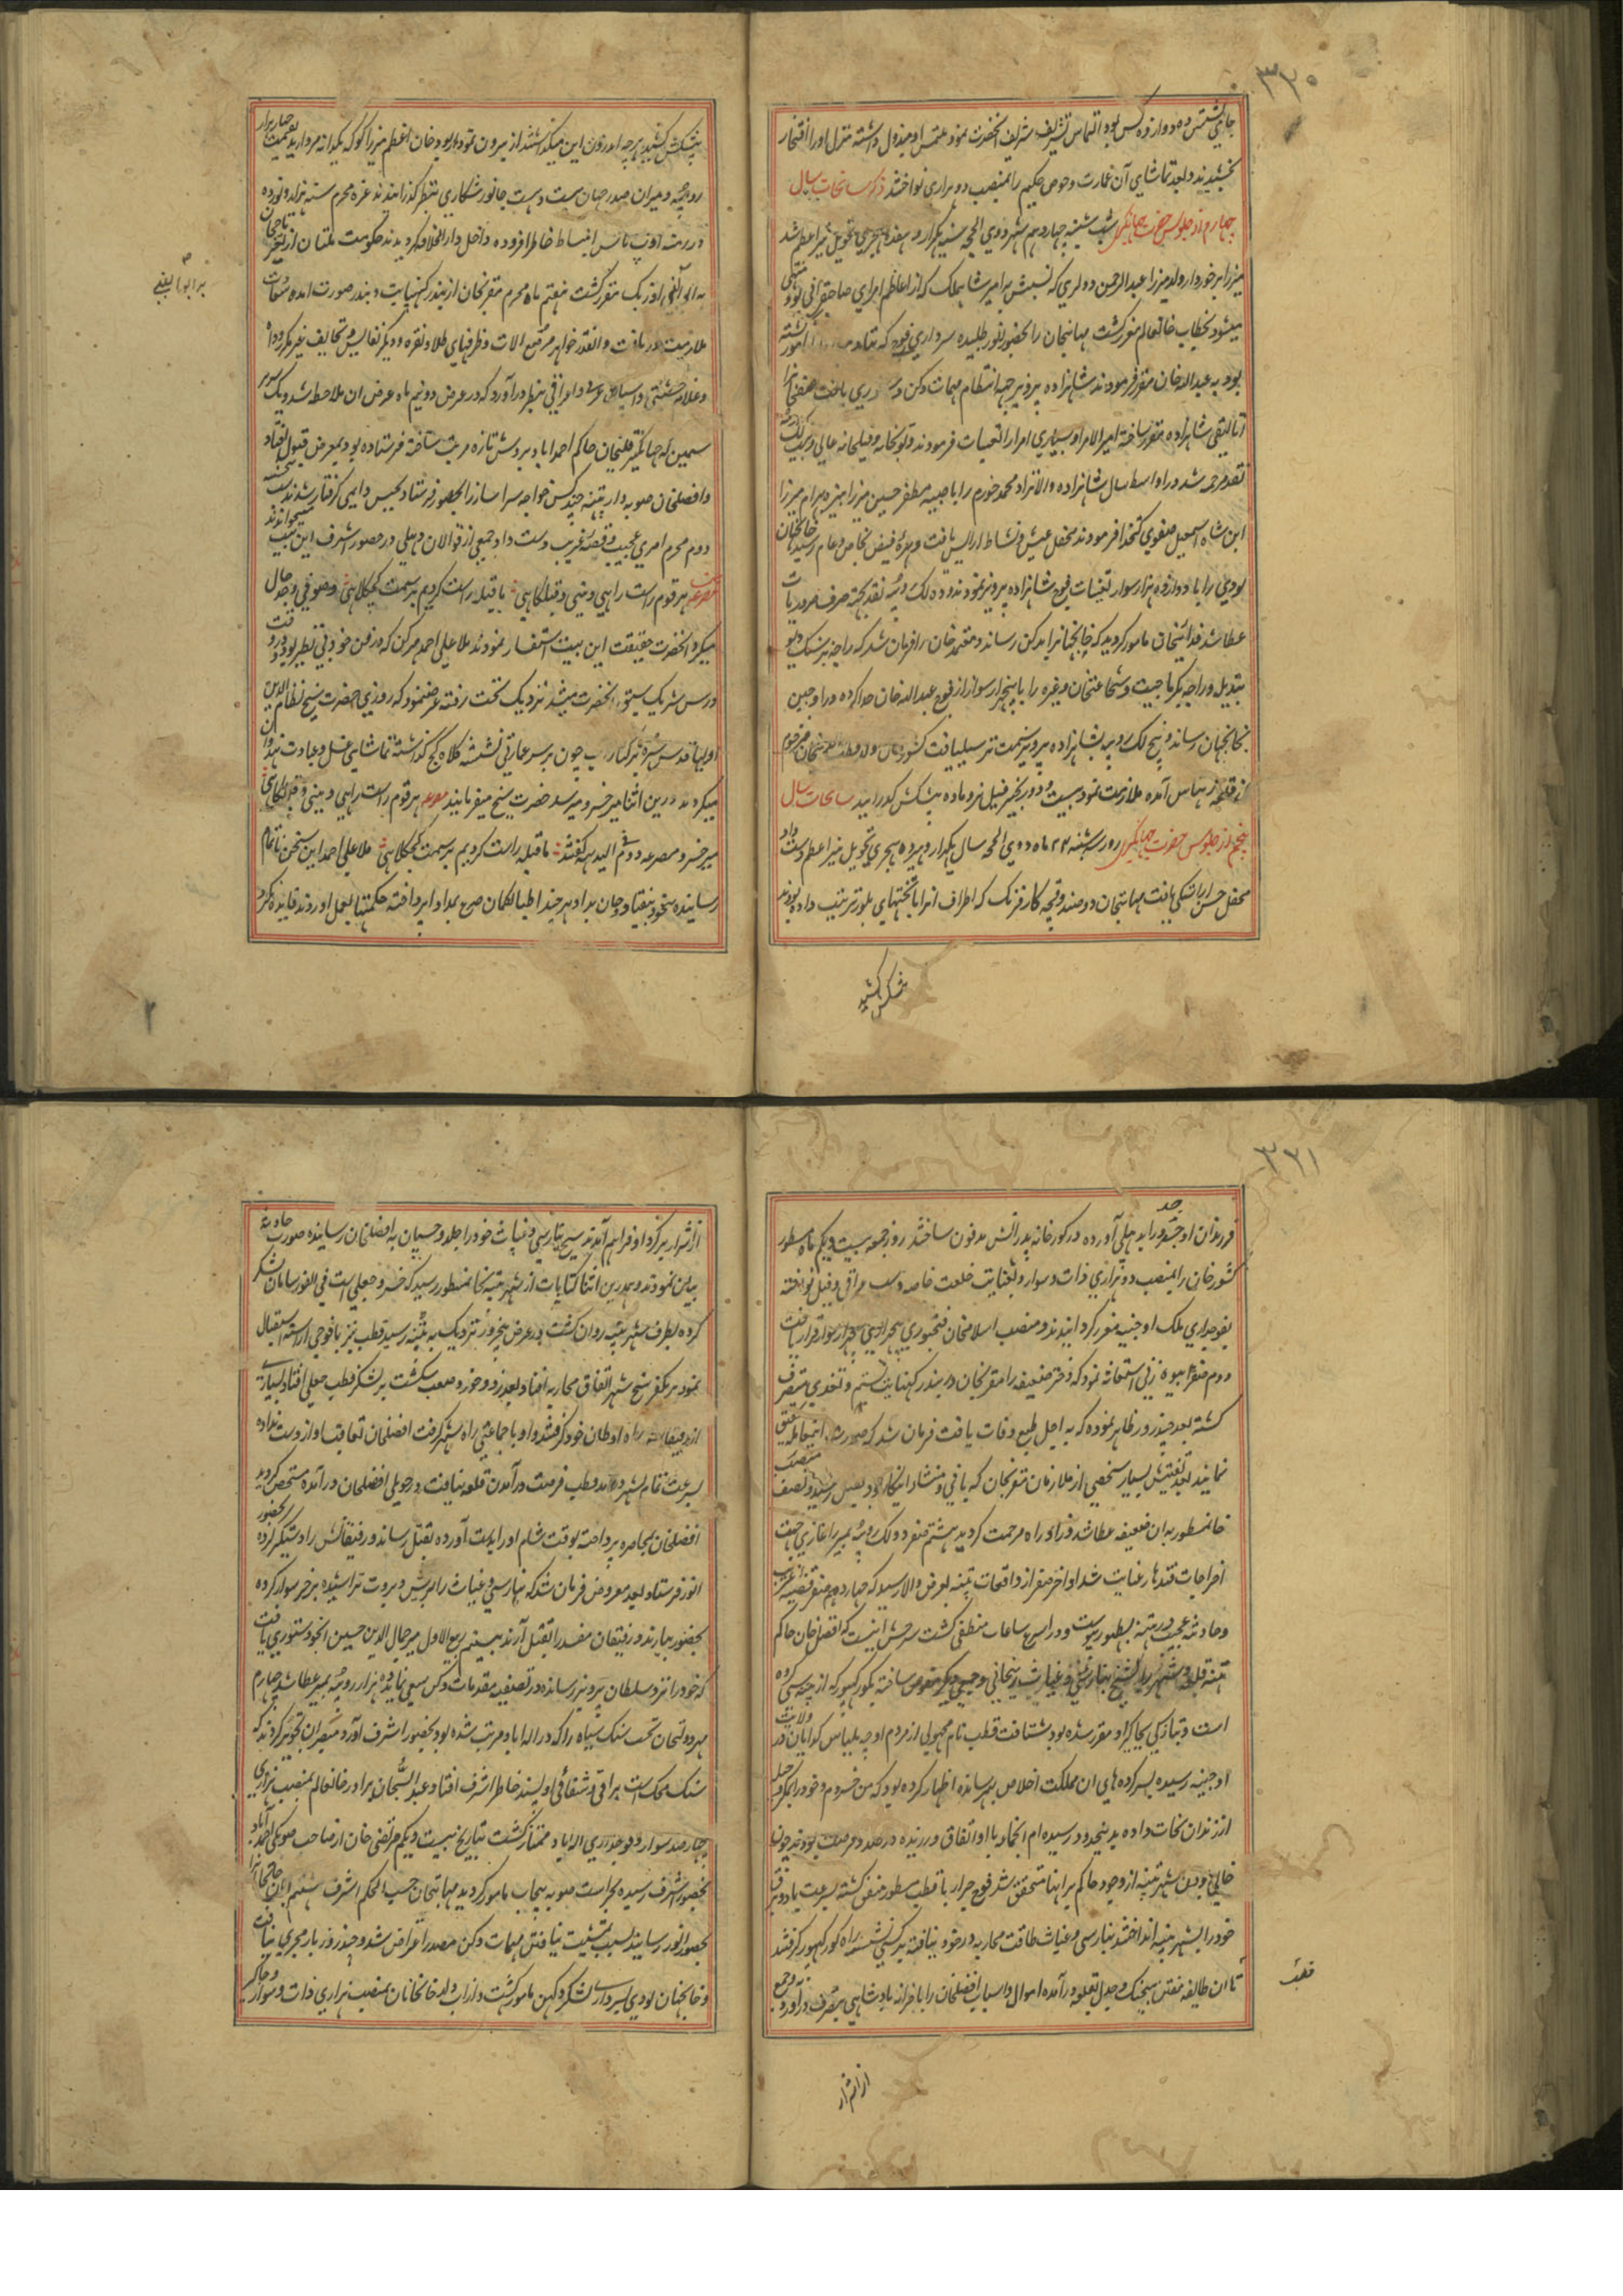 ۳۲۰
جای نشستن ده دوازده کس بود التماس تشریف شریف آنحضرت نمود ملتمس او مبذول داشته منزل او را افتخار
بخشیدند و بعد تماشای آن عمارت و حوض حکیم را بمنصب دو هزاری نواختند ذکر سانحات سال
چهارم از جلوس حضرت جهانگیری شب شنبه چهاردهم شهر ذی الحجه سنه یکهزار و هفده هجری تحویل نیر اعظم شد
میرزا برخوردار ولد میرزا عبدالرحمن دولدی که نسبتش به امیر شاه ملک که از اعاظم امرای صاحبقرانی بود منتهی
میشود بخطاب خانعالم مقرر گشت مهابتخان را بحضور انور طلبیده سرداری فوج که
بود به عبدالله خان مقرر فرمودند شاهزاده پرویز بجهة انتظام مهمات دکن
اتالیقی شاهزاده مقرر ساخته امیر الامرا و بسیاری امرا را تعینات فرمودند و توپخانه و فیلخانه عالی و بیست لک روپیه
نقد مرحمت شد در اواسط سال شاهزاده والانژاد محمد خورم را با صبیه مظفر حسین میرزا نبیره بهرام میرزا
ابن شاه اسمعیل صفوی کتخدا فرمودند محفل عیش و نشاط آرایش یافت و بهره فیض بخاص و عام رسید خانجهان
لودی را با دوازده هزار سوار تعینات فوج شاهزاده پرویز نمودند و ده لک روپیه نقد بجهة صرف ضروریات
عطا شد فدائیخان مامور گردید که خانجهانرا بدکن رساند و معتمد خان را فرمان شد که راجه نرسنگ دیو
بندیله و راجه بکرماجیت و شجاعتخان وغیره را با پنجهزار سوار از فوج عبدالله خان جدا کرده در اوجین
بخانجهان رساند و پنج لک روپیه بشاهزاده پرویز سمت ترسیل یافت کشور خان ولد قطب الدینخان مرحوم
از قلعه رهتاس آمده ملازمت نمود بیست و دو زنجیر فیل نر و ماده پیشکش گذرانید سانحات سال
پنجم از جلوس حضرت جهانگیری روز سه شنبه ۲۴ ماه ذی الحجه سال یکهزار و هیژده هجری تحویل نیر اعظم دست داد
محفل جشن اراستگی یافت مهابتخان دو صندوقچه کار فرنگ که اطراف انرا با تختهای بلور ترتیب داده بودند
پیشکش کشید
پیشکش کشید هرچه اندرون این میگذاشتند از بیرون نموده بود خان اعظم میرزا کوکه یکدانه مروارید بقیمت چهار هزار
روپیه و میران صدر جهان بیست و هشت جانور شکاری بنظر گذرانیدند غره محرم سنه هزار و نوزده
در رتهه اوپ باس انبساط خاطر افزوده داخل دارالخلافه گردیدند حکومت ملتان از تغیر تاجخان
به ابوالفی اوزبک مقرر گشت هفتم ماه محرم مقربخان از بندر کهنبایت و بندر صورت آمده سعادت
ملازمت دریافت و انقدر جواهر مرصع الات و ظرفهای طلا و نقره و دیگر نفایس و تحایف غیر مکرر
و غلامه حبشی و اسپان عربی و عراقی بنظر درآورد که در عرض دو نیم ماه عرض ان ملاحظه شد و یک سریر
سیمین که جهانگیر قلیخان حاکم احمداباد بروش تازه مرتب ساخته فرستاده بود بمعرض قبول افتاد
و افضلخان صوبه دار پتنه چند کس خواجه سرا ساز را بحضور فرستاد بحبس دایمی گرفتار شدند شب سه شنبه
دوم محرم امری عجیب و قصه غریب دست داد جمعی از قوالان دهلی در حضور اشرف این بیت میخواندند
مصرعه هر قوم راست راهی و دینی و قبله گاهی ما قبله راست کردیم بر سمت کجکلاهی وصوفی وجد حال
میکرد انحضرت حقیقت این بیت استفسار نمودند ملا علی احمد مهرکن که در فن خود بی نظیر بود در وقت
درس شریک سبق انحضرت میشد نزدیک تخت رفته عرض نمود که روزی حضرت شیخ نظام الدین
اولیا قدس سره بر کنار آب چون بر سر عمارتی نشسته کلاه کج گذاشته تماشای غسل و عبادت هندوان
میکردند درین اثنا میر خسرو میرسد حضرت شیخ میفرمایند مصرعه هر قوم راست راهی و دینی و قبله گاهی
میر خسرو مصرعه دوم فی البدیهه گفتند ما قبله راست کردیم بر سمت کجکلاهی ملا علی احمد این سخن ناتمام
رسانیده بیخود بیفتاد و جان بداد هرچند اطبا بگمان صرع بمداوا پرداختند حکمتها بعمل اوردند فایده نکرد
برابو الفی
۲
۳۲۱
فرزندان او جسد او را بدهلی آورده در گورخانه پدرانش مدفون ساختند روز جمعه بیست و یکم ماه مسطور
کشور خان را بمنصب دو هزاری ذات و سوار و بعنایت خلعت خاصه و اسپ عراقی و فیل نواخته
بفوجداری ملک اوجنیه مقرر گردانیدند و منصب اسلامخان فتحپوری پنجهزاری پنجهزار سوار قرار یافت
دوم صفر بیوه زنی استغاثه نمود که دختر ضعیفه را مقربخان در بندر کهنبایت بستم و تعدی متصرف
گشته بعد چند روز ظاهر نموده که به اجل طبع وفات یافت فرمان شد که
نمایند بعد تفتیش بسیار شخصی از ملازمان مقربخان که بانی و منشاء اینکار بود بقتل رسید و نصف منصب
خانمسطور به ان ضعیفه عطا شد و زاد راه مرحمت گردید هشتم صفر دو لک روپیه بمیرزا غازی جهت
اخراجات قندهار عنایت شد اواخر صفر از واقعات پتنه بعرض والا رسید که چهاردهم صفر قضیه غریب
و حادثه عجیب در پتنه بظهور پیوست و در اسرع ساعات منطفی گشت شرحش اینست که افضل خان حاکم
پتنه قلعه و شهر را به شیخ بنارسی و غیاث زینخانی و جمعی دیگر مفوض ساخته بگورکهپور که از پتنه سی کروه
است و بتازگی بجاگیر او مقرر شده بود شتافت قطب نام مجهولی از مردم اوچه بلباس گدایان در ولایت
اوجنیه رسیده بسر کرده های ان مملکت اخلاص بهم رسانده اظهار کرده بود که من خسروم و خود را بحیله
از زندان نجات داده بدینحدود رسیده ام انجماعه با او اتفاق ورزیده در صدد فرصت بودند چون
خالی بودن شهر پتنه از وجود حاکم بر اینها متحقق شد فوج جرار با قطب مسطور متفق گشته بسرعت باد و برق
خود را بشهر پتنه انداختند بنارسی و غیاث طاقت محاربه در خود نیافته بر کشتی نشسته راه گورکهپور گرفتند
تا ان طایفه مفتن بیجنگ و جدل بقلعه درآمده اموال و اسباب افضلخان را با خزانه بادشاهی متصرف درآورد و جمع
از اشرار
از اشرار بر گرد او فراهم آمدند شیخ بنارسی و غیاث خود را جلد و چسپان به افضلخان رسانیده صورت حادثه
بیان نمودند و همدرین اثنا کتابات از شهر پتنه بخانمسطور رسید که خسرو جعلی است فی الفور سامان لشکر
کرده بطرف شهر پتنه روان گشت در عرض پنجروز نزدیک به پتنه رسید قطب نیز با فوجی اراسته استقبال
نمود بر یکفرسنج شهر اتفاق محاربه افتاد بعد زد و خورد صعب شکست بر لشکر قطب جعلی افتاد بسیاری
از رفیقانش راه اوطان خود گرفتند و او با جماعتی راه شهر گرفت افضلخان تعاقب او از دست نداده
بسرعت تمام بشهر درآمد قطب فرصت درآمدن قلعه نیافت در حویلی افضلخان درآمده متحصن گردید
افضلخان بمحاصره پرداخته بوقت شام او را بدست آورده بقتل رساند و رفیقانش را دستگیر کرده بحضور
انور فرستاد بعد معروض فرمان شد که بنارسی و غیاث را بریش و بروت تراشیده بر خر سوار کرده
بحضور بیارند و رفیقان مفسد را بقتل آرند بیستم ربیع الاول میر جمال الدین حسین انجو دستوری یافت
که خود را نزد سلطان پرویز رسانده در تصفیه مقدمات دکن سعی نماید ده هزار روپیه بمیر عطا شد چهارم
مهر دولتخان تخت سنگ سیاه را که در اله اباد مرتب شده بود بحضور اشرف آورد مبصران تجویز کردند که
سنگ محک است براقی و شفافی او پسند خاطر اشرف افتاد عبد السبحان برادر خانعالم بمنصب هزاری
چهارصد سوار و فوجداری اله اباد ممتاز گشت بتاریخ بیست و یکم مرتضی خان از صاحب صوبگی احمد اباد
بحضور اشرف رسیده بحراست صوبه پنجاب مامور گردید مهابتخان حسب الحکم اشرف هشتم ابان خانخانانرا
بحضور انور رسانید بسبب تمشیت نیافتن مهمات دکن مصدر اعتراض شد و چند روز بار مجری نیافت
و خانجهان لودی بسرداری لشکر دکهن مامور گشت و داراب ولد خانخانان بمنصب هزاری ذات و سوار و جاگیر